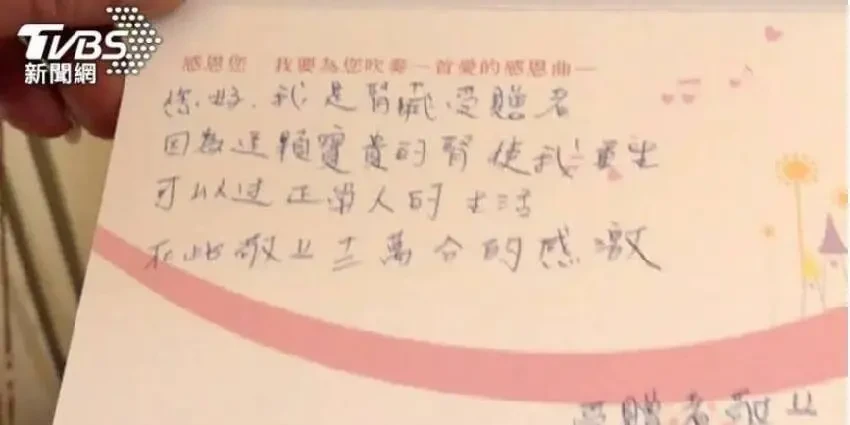 TVBS
新聞網
感恩您 我要為您吹奏一首愛的感恩曲—
您好.我是腎臟受贈者
因為這顆寶貴的腎使我重生
可以过正常人的生活
在此敬上十二萬分的感激
受贈者敬上